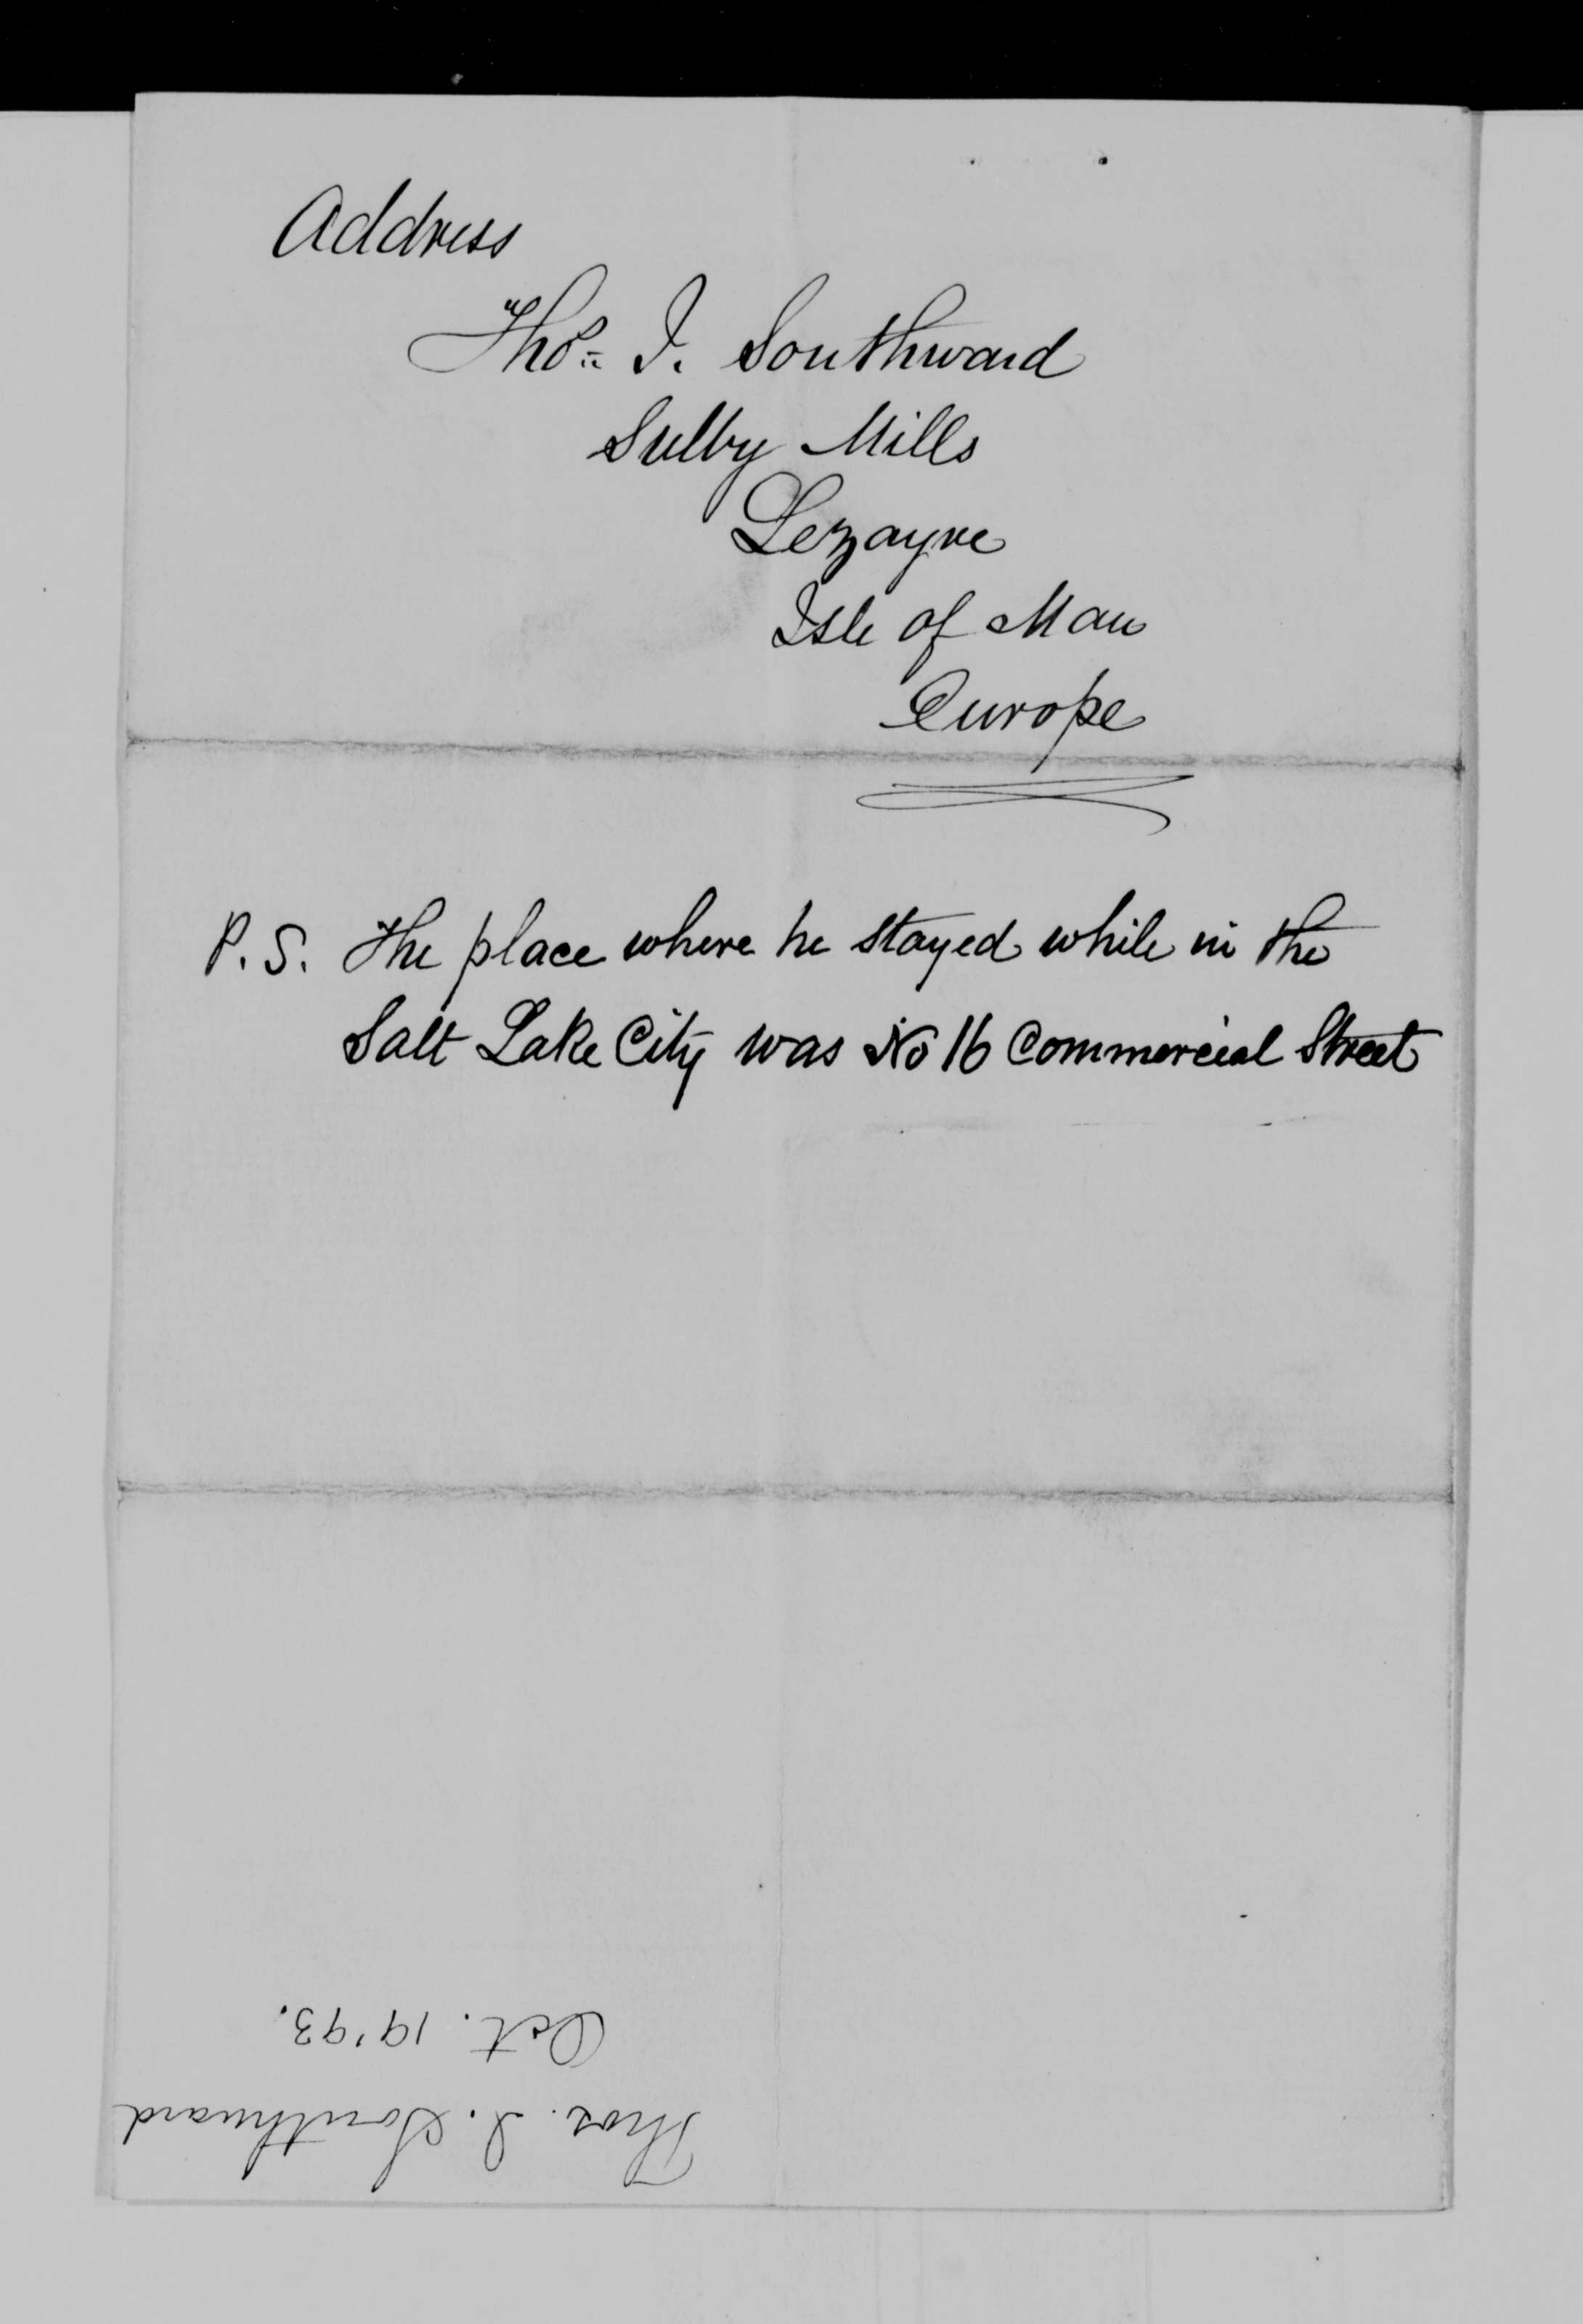 Address
Thos. I. Southward
Sulby Mills
Lezayre
Isle of Man
Europe
P.S. The place where he stayed while in the
Salt Lake City was No 16 Commercial Street
Thos. I. Southward
Oct. 19 '93.